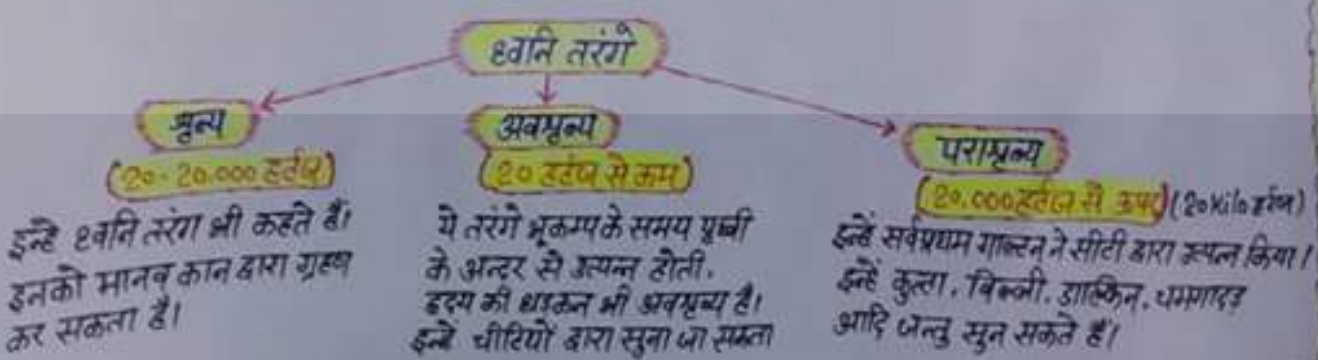 ध्वनि तरंगे
श्रव्य
(20-20,000 हर्टज)
इन्हे ध्वनि तरंग भी कहते हैं।
इनको मानव कान द्वारा ग्रहण
कर सकता है।
अवश्रव्य
(20 हर्टज से कम)
ये तरंगे भूकम्प के समय पृथ्वी
के अन्दर से उत्पन्न होती.
हृदय की धड़कन भी अवश्रव्य है।
इन्हे चीटियों द्वारा सुना जा सकता
पराश्रव्य
(20,000 हर्टज से ऊपर) (20 Kilo हर्टज)
इन्हें सर्वप्रथम गाल्टन ने सीटी द्वारा उत्पन्न किया।
इन्हें कुत्ता, बिल्ली, डाल्फिन, चमगादड़
आदि जन्तु सुन सकते हैं।